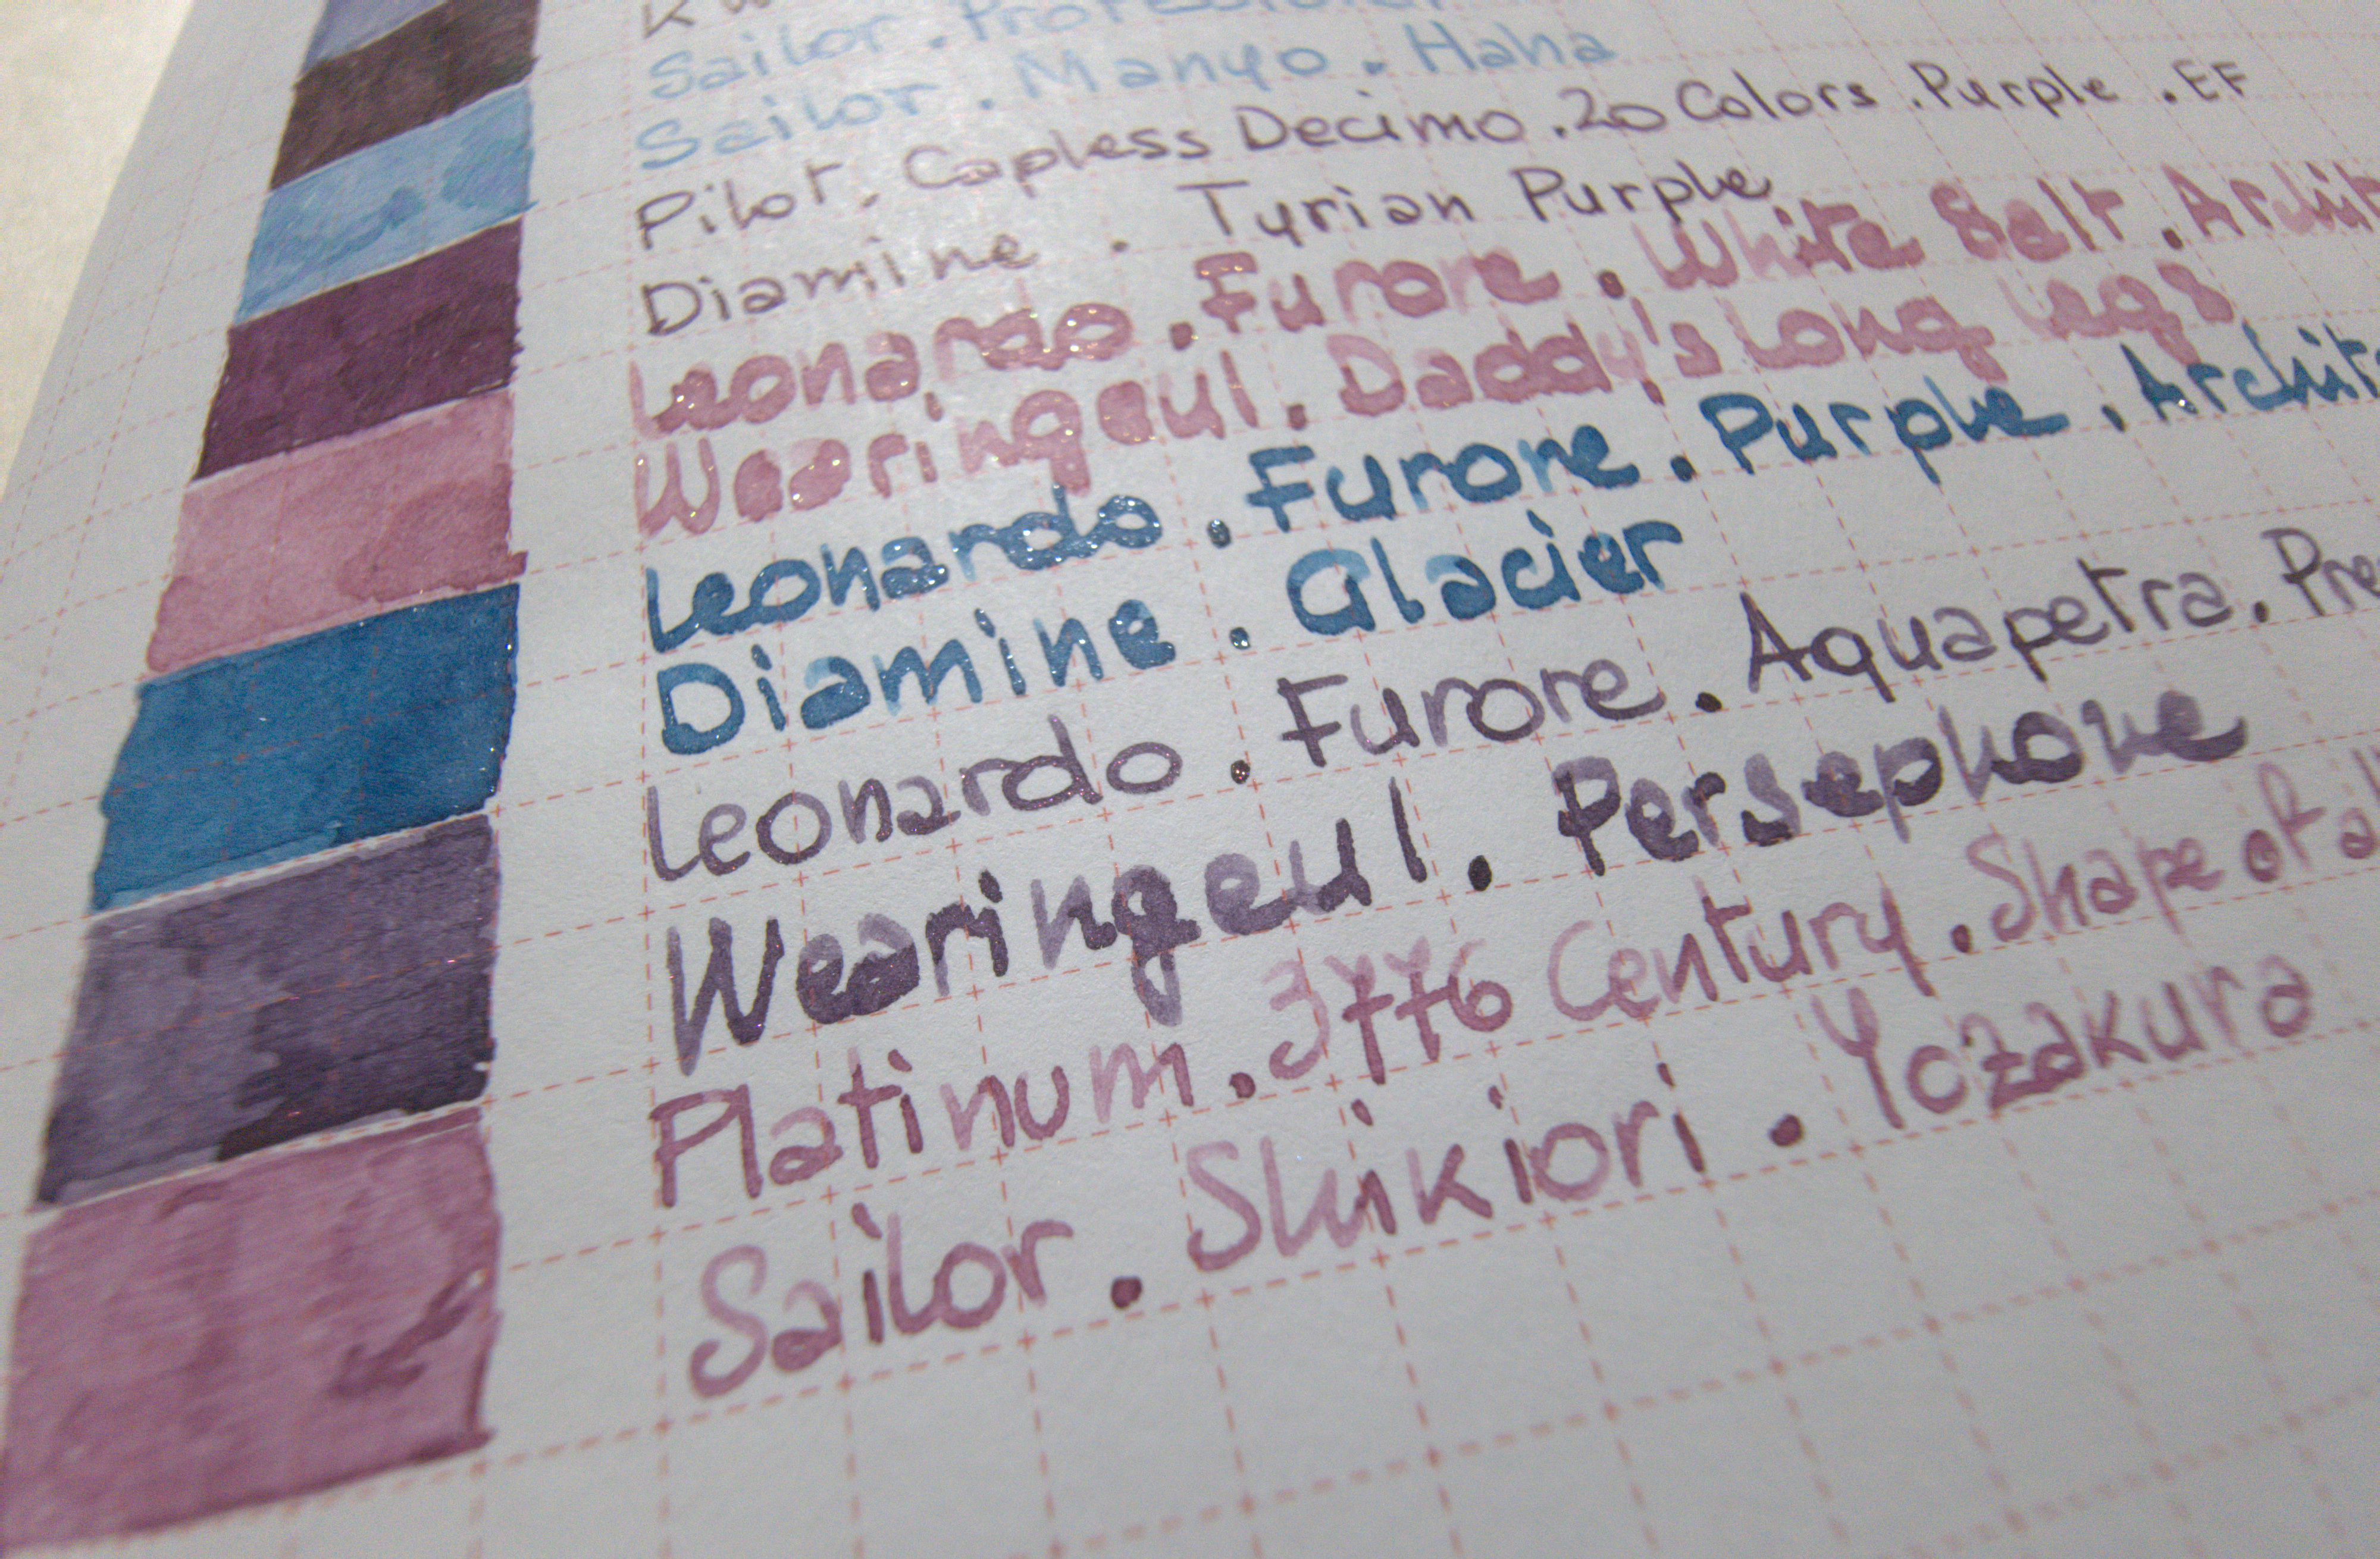 Sailor . Professional
Sailor . Manyo . Haha
Pilot . Capless Decimo . 20 Colors . Purple . EF
Diamine . Tyrian Purple
Leonardo . Furore . White Salt .
Wearingeul . Daddy's Long Legs
Leonardo . Furore . Purple .
Diamine . Glacier
Leonardo . Furore . Aquapetra .
Wearingeul . Persephone
Platinum . 3776 Century . Shape of a
Sailor . Shikiori . Yozakura